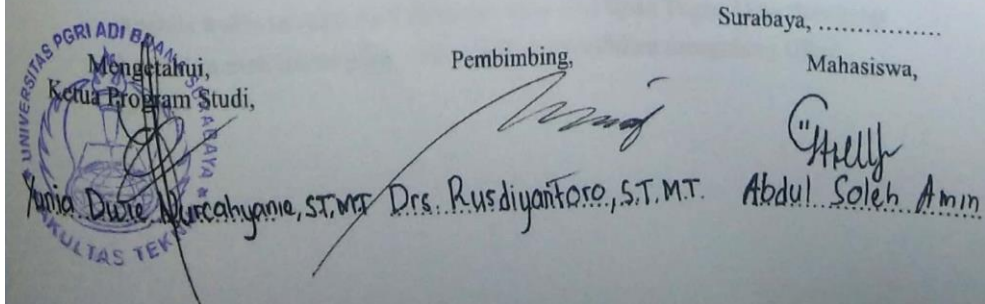 Surabaya, ................
Mengetahui,
Ketua Program Studi,
Pembimbing,
Mahasiswa,
Yunia Dwie Nurcahyanie, ST.MT
Drs. Rusdiyantoro, S.T, M.T.
Abdul Soleh Amin
UNIVERSITAS PGRI ADI BUANA SURABAYA
FAKULTAS TEKNIK